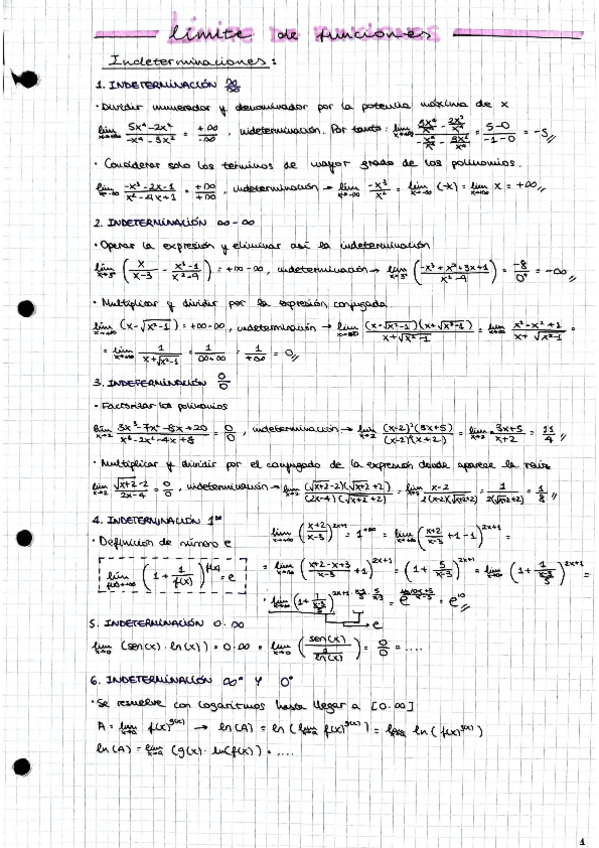 límite de funciones
Indeterminaciones:
1. INDETERMINACIÓN ∞/∞
· Dividir numerador y denominador por la potencia máxima de x
lim x→+∞ (5x⁴-2x²)/(-x⁴-3x²) = +∞/-∞, indeterminación. Por tanto: = (5-0)/(-1-0) = -5
· Considerar solo los términos de mayor grado de los polinomios.
lim x→-∞ (-x³-2x-1)/(x²-4x+1) = +∞/+∞, indeterminación → lim x→-∞ -x³/x² = lim x→-∞ (-x) = lim x→+∞ x = +∞
2. INDETERMINACIÓN ∞-∞
· Operar la expresión y eliminar así la indeterminación
lim (x/(x-3) - (x³-1)/(x²-9)) = +∞-∞, indeterminación → lim ((-x³+x²+3x+1)/(x²-9)) = -8/0⁺ = -∞
· Multiplicar y dividir por la expresión conjugada.
lim x→+∞ (x-√(x²-1)) = +∞-∞, indeterminación → lim ((x-√(x²-1))(x+√(x²-1)))/(x+√(x²-1)) = lim (x²-x²+1)/(x+√(x²-1)) =
= lim x→+∞ 1/(x+√(x²-1)) = 1/(∞+∞) = 1/+∞ = 0
3. INDETERMINACIÓN 0/0
· Factorizar los polinomios
lim x→2 (3x³-7x²-8x+20)/(x³-2x²-4x+8) = 0/0, indeterminación → lim x→2 ((x-2)²(3x+5))/((x-2)²(x+2)) = lim x→2 (3x+5)/(x+2) = 11/4
· Multiplicar y dividir por el conjugado de la expresión donde aparece la raíz
lim x→2 (√(x+2)-2)/(2x-4) = 0/0, indeterminación → lim x→2 ((√(x+2)-2)(√(x+2)+2))/((2x-4)(√(x+2)+2)) = lim x→2 (x-2)/(2(x-2)(√(x+2)+2)) = 1/(2(√(x+2)+2)) = 1/8
4. INDETERMINACIÓN 1^∞
lim x→+∞ ((x+2)/(x-3))^(2x+1) = 1^(+∞) = lim x→+∞ ((x+2)/(x-3) + 1 - 1)^(2x+1) =
· Definición de número e
lim f(x)→+∞ (1 + 1/f(x))^f(x) = e
= lim x→+∞ ((x+2-x+3)/(x-3) + 1)^(2x+1) = (1 + 5/(x-3))^(2x+1) = lim x→+∞ (1 + 1/((x-3)/5))^(2x+1) =
= e^10
→ e
5. INDETERMINACIÓN 0·∞
lim x→0 (sen(x)·ln(x)) = 0·∞ = lim x→0 (sen(x)/(1/ln(x))) = 0/0 = ....
6. INDETERMINACIÓN ∞⁰ Y 0⁰
· Se resuelve con logaritmos hasta llegar a [0·∞]
A = lim x→a f(x)^g(x) → ln(A) = ln (lim x→a f(x)^g(x)) = lim x→a ln (f(x)^g(x))
ln(A) = lim x→a (g(x)·ln(f(x))) = ....
1